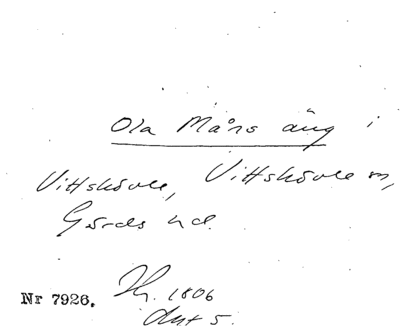 Ola Måns äng i
Vittskövle, Vittskövle sn,
Gärds hd.
Nr 7926. 1806
Akt 5.